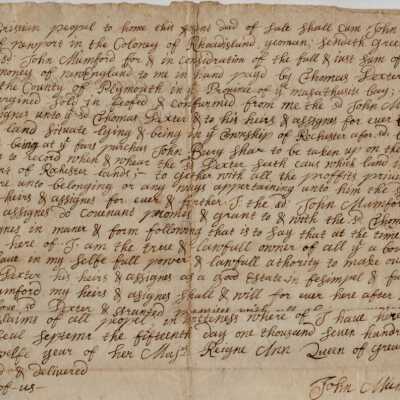 Cristian peopel to home this present dead of sale shall cum John
of newport in the Coloney of Rhoadisland yeoman; sendeth Gree
sd John Mumford for & in consideration of the full & just sum of
money of newEngland to me in hand payd by Thomas Dexter
the County of Plymouth in ye Province of ye masathusits bay;
bargined sold in feofed & confurmed from me the sd John M
assigns unto ye sd Thomas Dexter & to his heirs & assignes for ever
land situate lying & being in ye township of Rochester afor sd
being at ye furs purchas John Bery shar to be taken up on the
to record when & whear the sd Dexter seeth caus which land
of Rochester lands; to gether with all the proffits privi
unto belonging or any ways appertaining unto him the s
heirs & assignes for ever & further I the sd John Mumfor
assignes do Covenant promes & grant to & with the sd Tho
in maner & form following that is to say that at the time
here of I am the true & lawfull owner of all ye a bov
have in my selfe full power & lawfull athority to make ov
Dexter his heirs & assignes as a good Estate in fe simpel & fu
Mumford my heirs & assignes shall & will for ever here after
sd Dexter &
claims of all peopel in witness where of I have here
seal Septemr the fifteenth day one thousand seven hundr
twelfe year of her Majs Reigne Ann Queen of Grea
& delivered
of us
John Mum